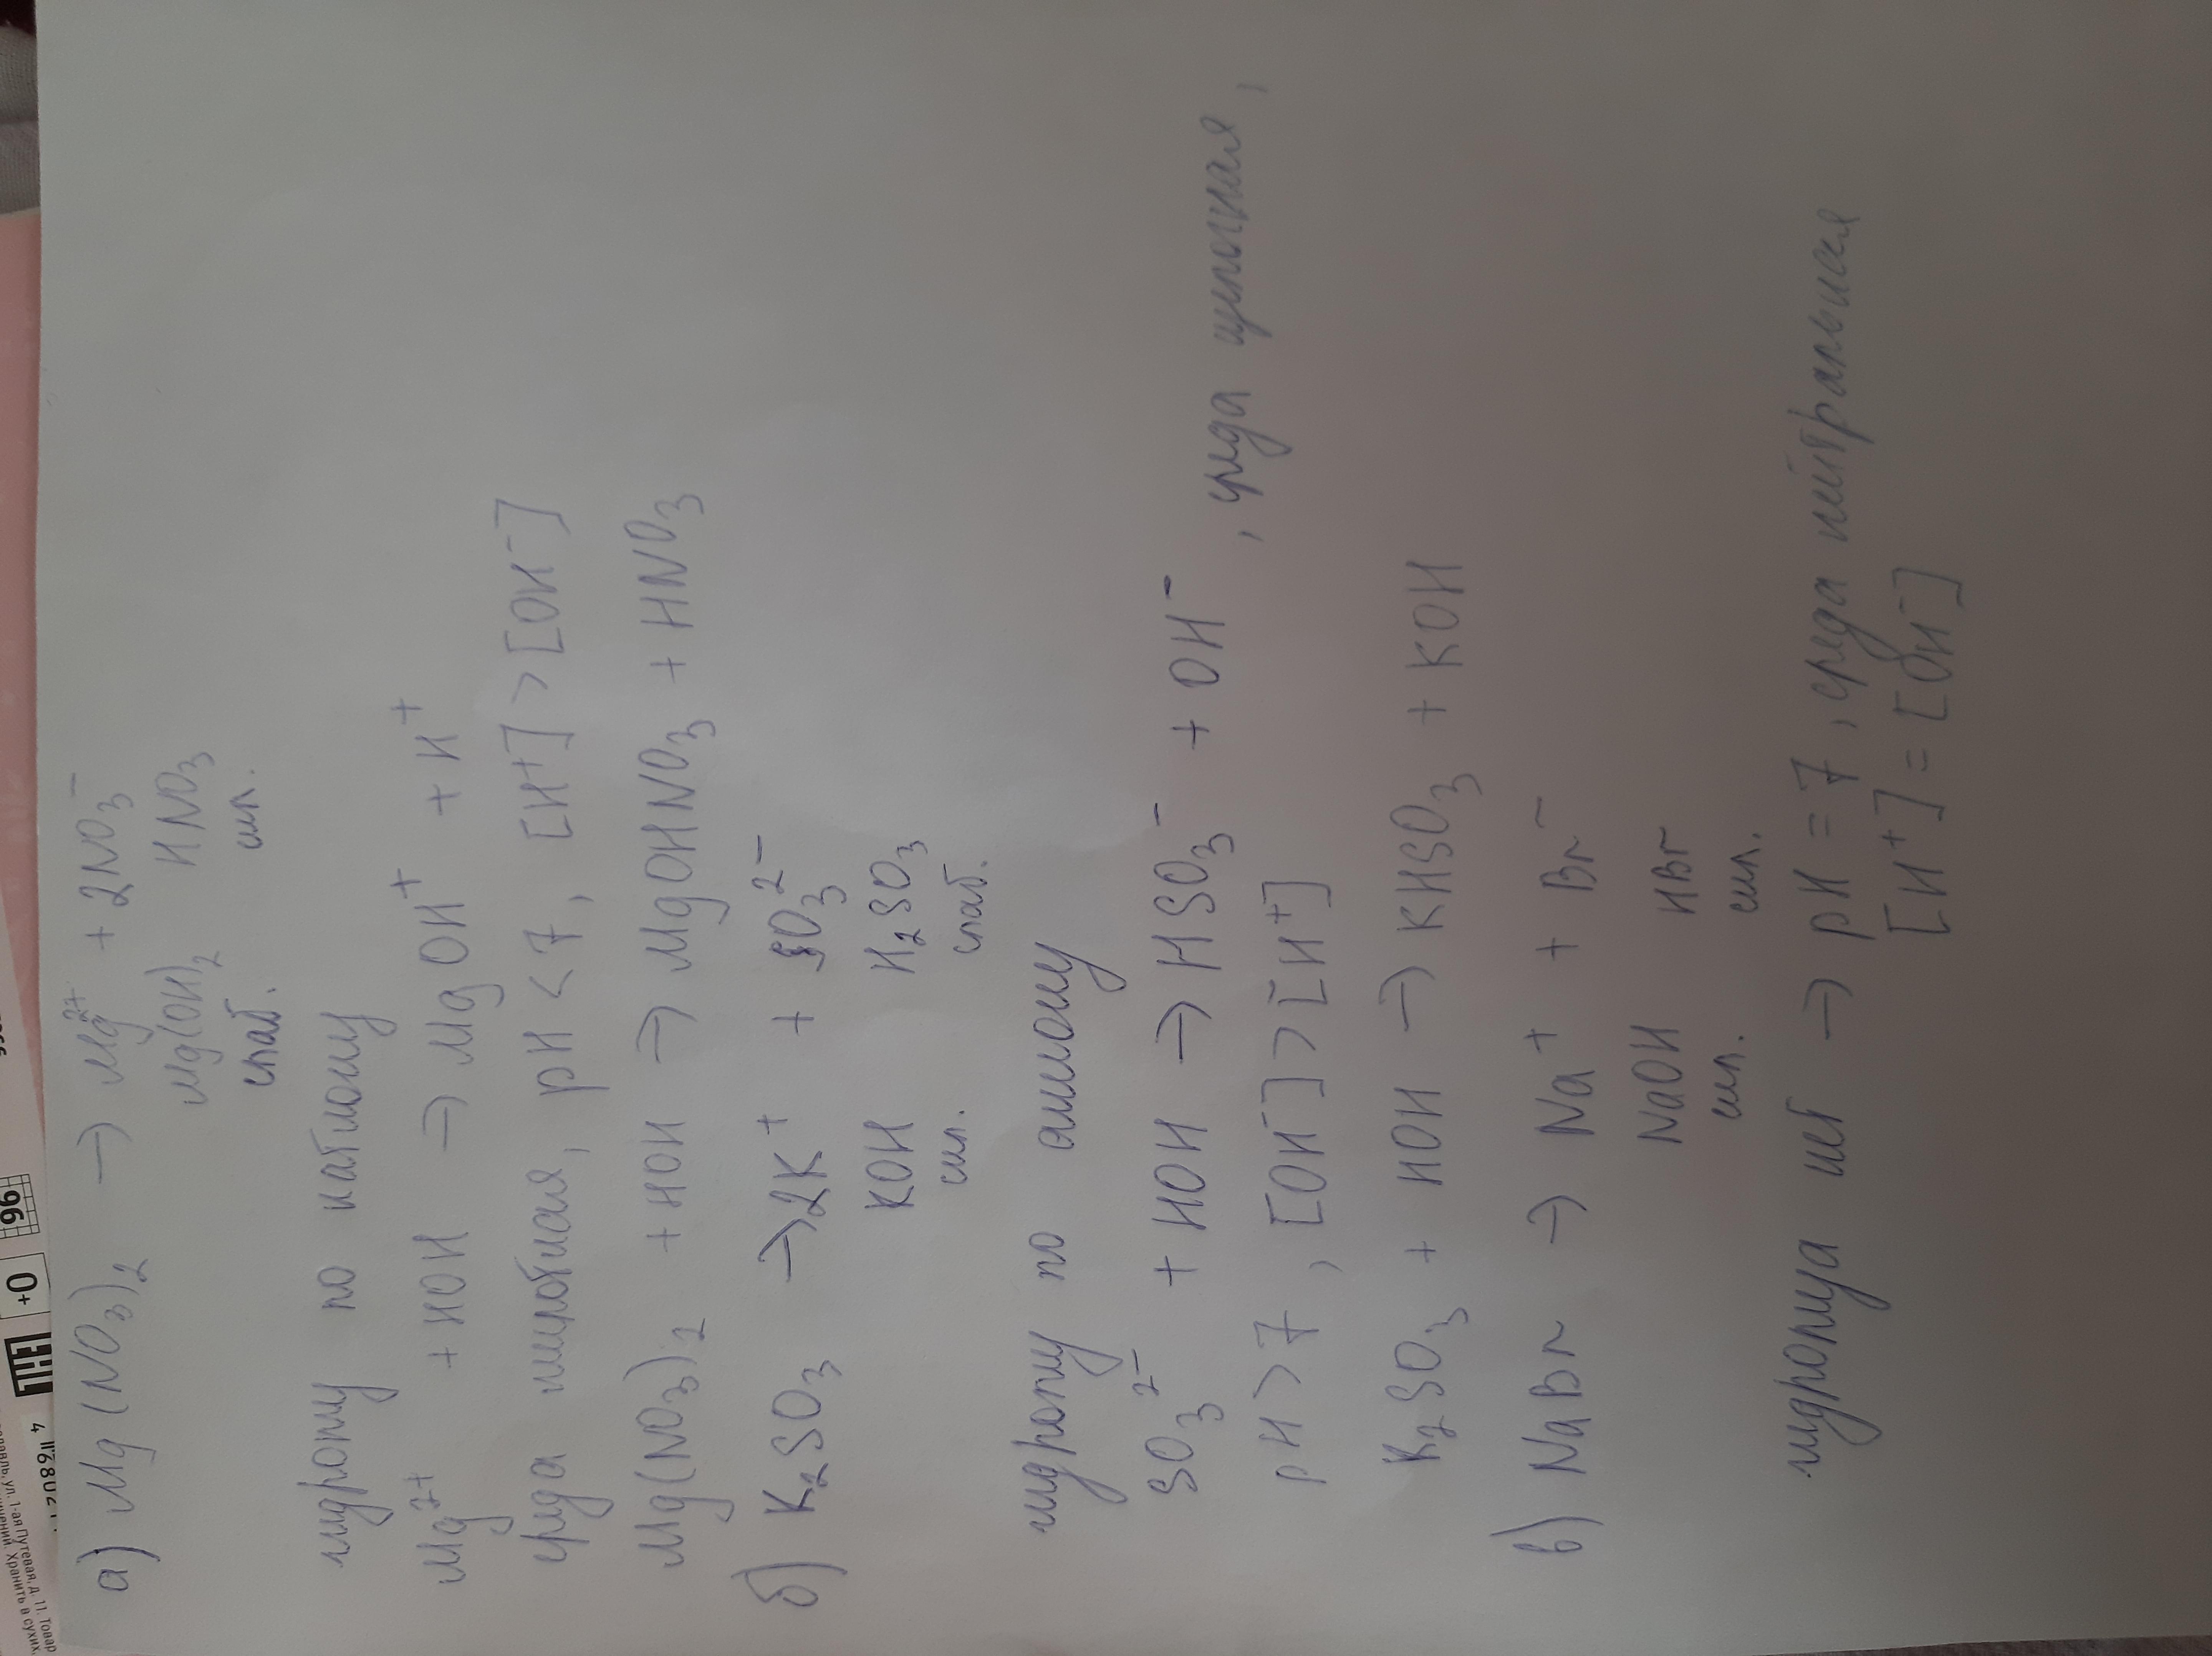 а) Mg(NO₃)₂ → Mg²⁺ + 2NO₃⁻
Mg(OH)₂ HNO₃
слаб. сил.
гидролиз по катиону
Mg²⁺ + HOH → MgOH⁺ + H⁺
среда кислотная, pH < 7, [H⁺] > [OH⁻]
Mg(NO₃)₂ + HOH → MgOHNO₃ + HNO₃
б) K₂SO₃ → 2K⁺ + SO₃²⁻
KOH H₂SO₃
сил. слаб.
гидролиз по аниону
SO₃²⁻ + HOH → HSO₃⁻ + OH⁻, среда щелочная,
pH > 7, [OH⁻] > [H⁺]
K₂SO₃ + HOH → KHSO₃ + KOH
в) NaBr → Na⁺ + Br⁻
NaOH HBr
сил. сил.
гидролиза нет → pH = 7, среда нейтральная
[H⁺] = [OH⁻]
96
0+
EAC
ул. 1-ая Путевая, д. 11. Товар
Хранить в сухих,